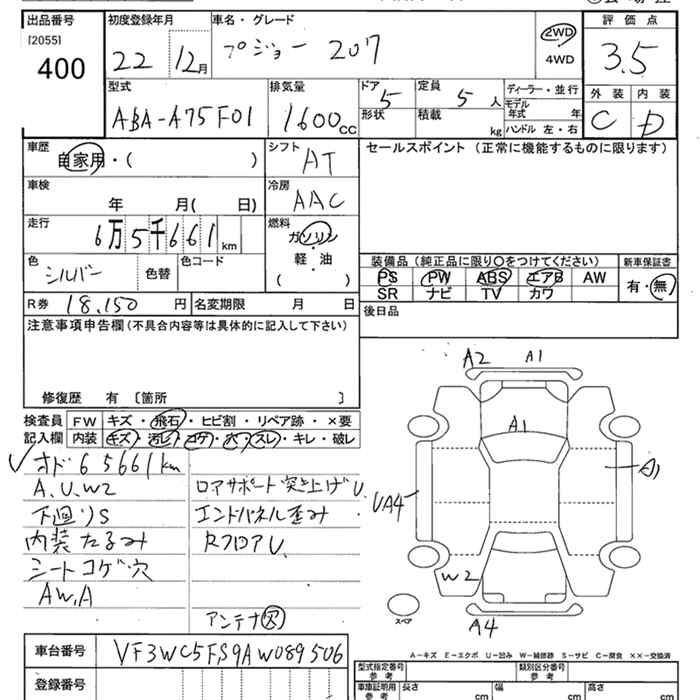 出品番号
[2055]
400
初度登録年月
22 12月
車名・グレード
プジョー 207
2WD
4WD
評価点
3.5
型式
ABA-A75F01
排気量
1600cc
ドア 5
形状
定員 5人
積載 kg
ディーラー・並行
モデル年式 年
ハンドル 左・右
外装 内装
C D
車歴
自家用・( )
シフト
AT
セールスポイント (正常に機能するものに限ります)
車検
年 月( 日)
冷房
AAC
走行
6万5千661km
燃料
ガソリン
軽・油
( )
色
シルバー
色替
色コード
装備品 (純正品に限り○をつけてください)
新車保証書
PS PW ABS エアB AW
SR ナビ TV カワ
有・無
R券 18,150円
名変期限 月 日
後日品
注意事項申告欄(不具合内容等は具体的に記入して下さい)
修復歴 有 [箇所 ]
検査員記入欄
FW キズ・飛石・ヒビ割・リペア跡・×要
内装 キズ・汚レ・コゲ・穴・スレ・キレ・破レ
オド 65661km
A.U.W2
下廻りS
内装たるみ
シートコゲ穴
AW.A
ロアサポート突き上げU.
エンドパネル歪み
RフロアU.
アンテナ欠
A2 A1
A1
A1
UA4
W2
A4
スペア
A-キズ E-エクボ U-凹み W-補修跡 S-サビ C-腐食 XX-交換済
車台番号 VF3WC5FS9AW089506
登録番号
型式指定番号 参考
類別区分番号 参考
車庫証明用 参考
長さ cm
幅 cm
高さ cm